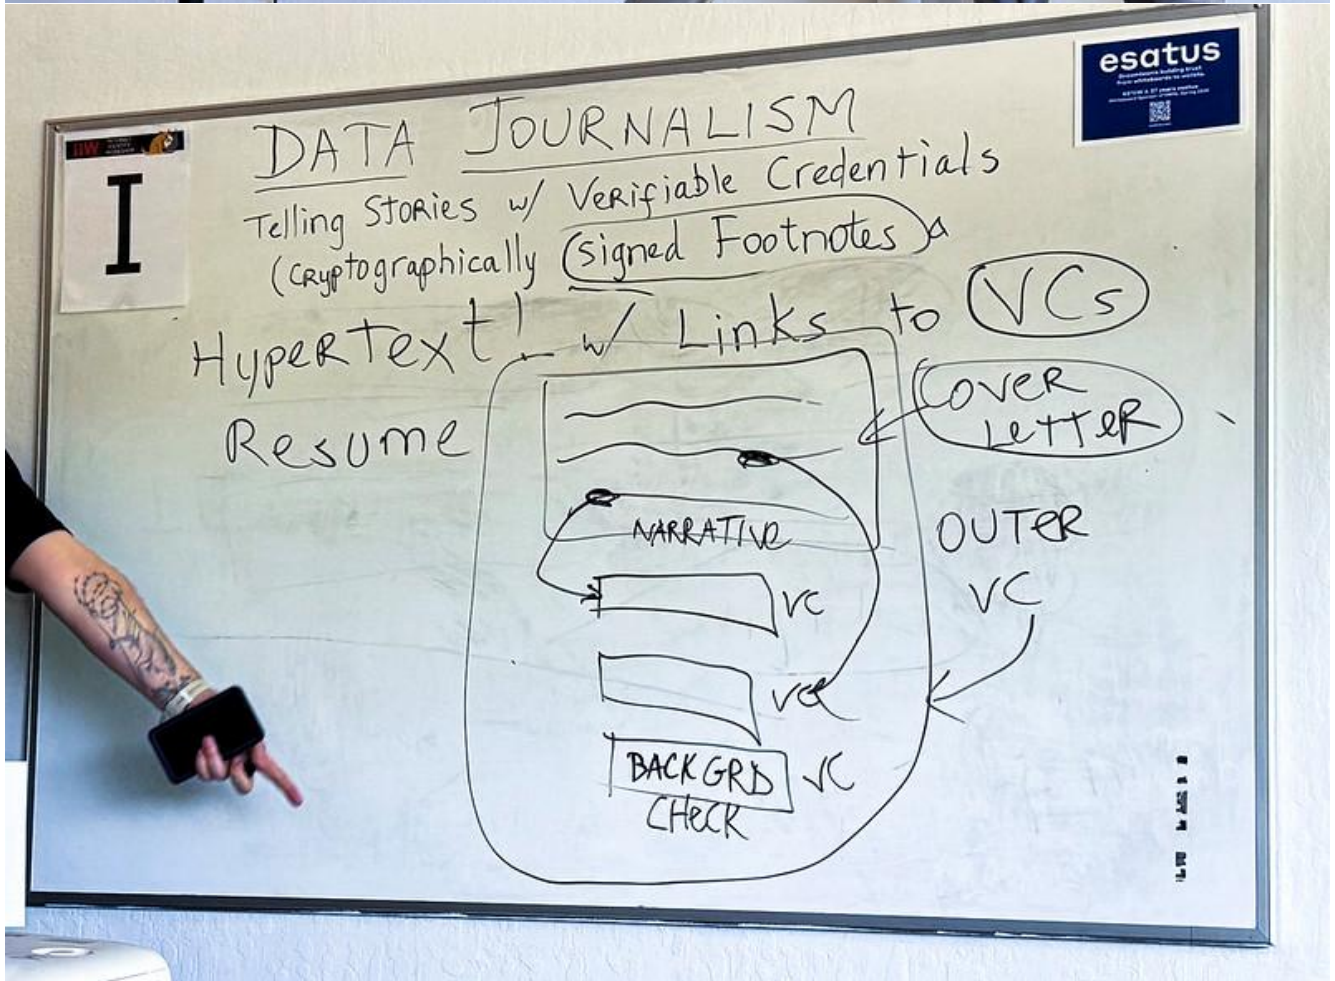 IIW
I
esatus
DATA JOURNALISM
Telling Stories w/ Verifiable Credentials
(Cryptographically signed Footnotes)
HyperText! w/ Links to VCs
Resume
COVER
LETTER
NARRATIVE
OUTER
VC
VC
VC
BACKGRD VC
CHECK